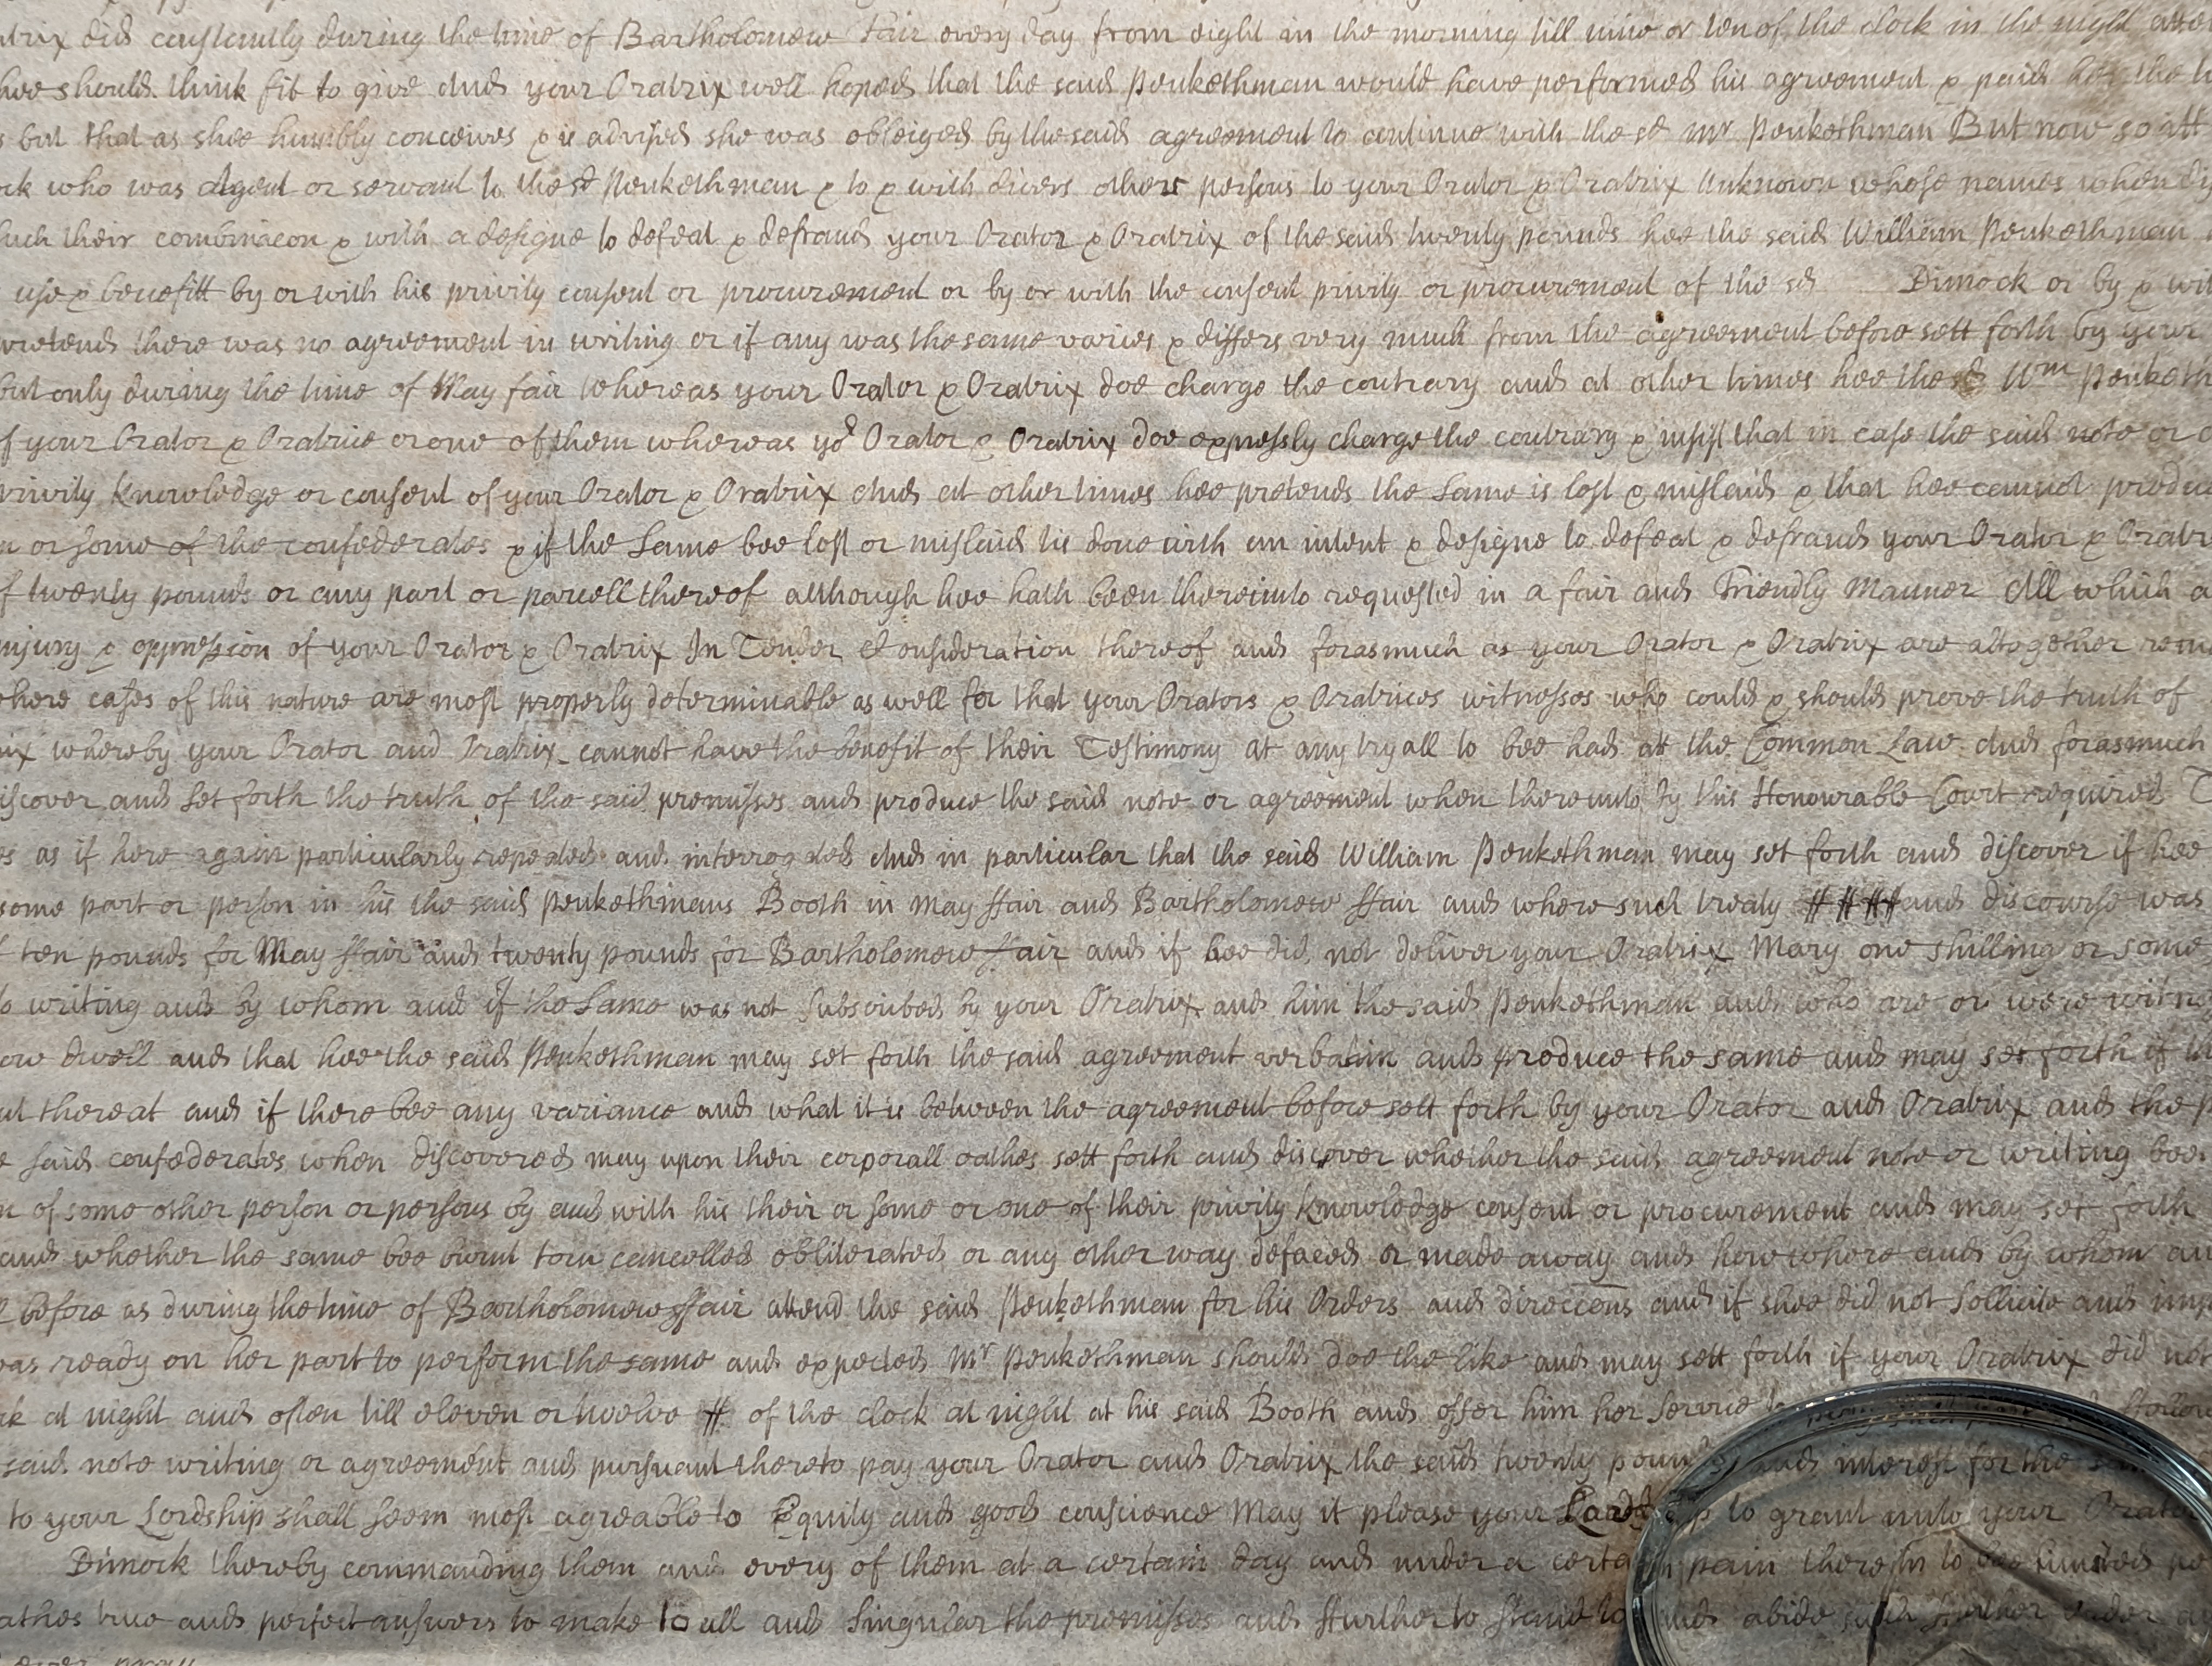 atrix did constantly during the time of Bartholomew Fair every day from eight in the morning till nine or ten of the clock in the night
hee should think fit to give And your Oratrix well hoped that the said Penkethman would have performed his agreement & paid her the
but that as shee humbly conceives & is advised she was obleiged by the said agreement to continue with the sd Mr Penkethman But now so itt
ck who was Agent or servant to the sd Penkethman & to & with divers others persons to your Orator & Oratrix Unknown whose names when
such their combinacon & with a designe to defeat & defraud your Orator & Oratrix of the said twenty pounds hee the said William Penkethman
use & benefitt by or with his privity consent or procurement or by or with the consent privity or procurement of the sd Dimock or by & wit
pretends there was no agreement in writing or if any was the same varies & differs very much from the agreement before sett forth by your
but only during the time of May fair Whereas your Orator & Oratrix doe charge the contrary and at other times hee the sd Wm Penketh
f your Orator & Oratrice or one of them whereas yor Orator & Oratrix doe expressly charge the contrary & insist that in case the said note or
privity knowledge or consent of your Orator & Oratrix And at other times hee pretends the Same is lost & mislaid & that hee cannot produc
or some of the confederates & if the Same bee lost or mislaid tis done with an intent & designe to defeat & defraud your Orator & Oratr
f twenty pounds or any part or parcell thereof although hee hath been thereunto requested in a fair and Friendly Manner All which
injury & oppression of your Orator & Oratrix In Tender Consideration thereof and forasmuch as your Orator & Oratrix are altogether rem
where cases of this nature are most properly determinable as well for that your Orators & Oratrices witnesses who could & should prove the truth of
ix whereby your Orator and Oratrix cannot have the benefit of their Testimony at any tryall to bee had att the Common Law And forasmuch
iscover and set forth the truth of the said premisses and produce the said note or agreement when thereunto by this Honourable Court required T
es as if here again particularly repeated and interrogated And in particular that the said William Penkethman may set forth and discover if hee
some part or person in his the said Penkethmans Booth in May ffair and Bartholomew ffair and where such treaty #### and discourse was
f ten pounds for May ffair and twenty pounds for Bartholomew ffair and if hee did not deliver your Oratrix Mary one shilling or some
to writing and by whom and if the Same was not Subscribed by your Oratrix and him the said Penkethman and who are or were witne
ow dwell and that hee the said Penkethman may set forth the said agreement verbatim and produce the same and may set forth if
ut thereat and if there bee any variance and what it is between the agreement before sett forth by your Orator and Oratrix and the p
e said confederates when discovered may upon their corporall oathes sett forth and discover whether the said agreement note or writing bee
n of some other person or persons by and with his their or some or one of their privity knowledge consent or procurement and may set forth
and whether the same bee burnt torn cancelled obliterated or any other way defaced or made away and how where and by whom an
l before as during the time of Bartholomew ffair attend the said Penkethman for his Orders and direccons and if shee did not Sollicite and imp
was ready on her part to perform the same and expected Mr Penkethman should doe the like and may sett forth if your Oratrix did not
ck at night and often till eleven or twelve # of the clock at night at his said Booth and offer him her Service
said note writing or agreement and pursuant thereto pay your Orator and Oratrix the said twenty pounds and interest for the
to your Lordship shall seem most agreable to Equity and good conscience May it please your Lordship to grant unto your Orator
Dimock thereby commanding them and every of them at a certain day and under a certain pain therein to bee limited
oathes true and perfect answers to make to all and Singular the premisses and ffurther to stand to and abide such further order